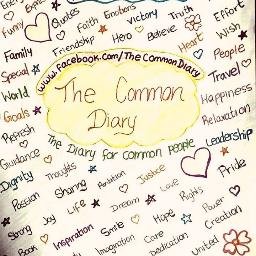 Quotes
Faith Emotions
Victory Truth
Effort
Funny
Friendship
Hero
Believe
Heart
Wish
Family
People
Special
www.facebook.com/TheCommonDiary
Travel
World
The Common
Happiness
Goals
Diary
Relaxation
Refresh
The Diary for Common People
Leadership
Guidance
Dignity
Thoughts
Ambition
Justice
Pride
Passion
Sharing
Love
Rights
Power
Strong
Joy
Life
Dream
Hope
Creation
Smile
Book
Inspiration
Care
Imagination
Dedication
United